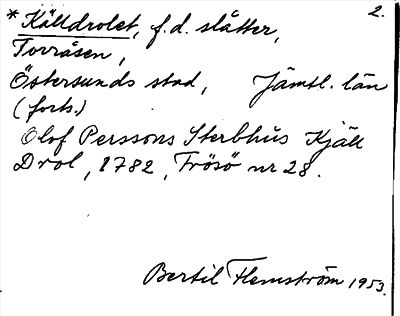 2.
*Källdrolet, f.d. slåtter,
Torråsen,
Östersunds stad, Jämtl. län
(forts.)
Olof Perssons Sterbhus Kjäll
Drol, 1782, Frösö nr 28.
Bertil Flemström 1953.